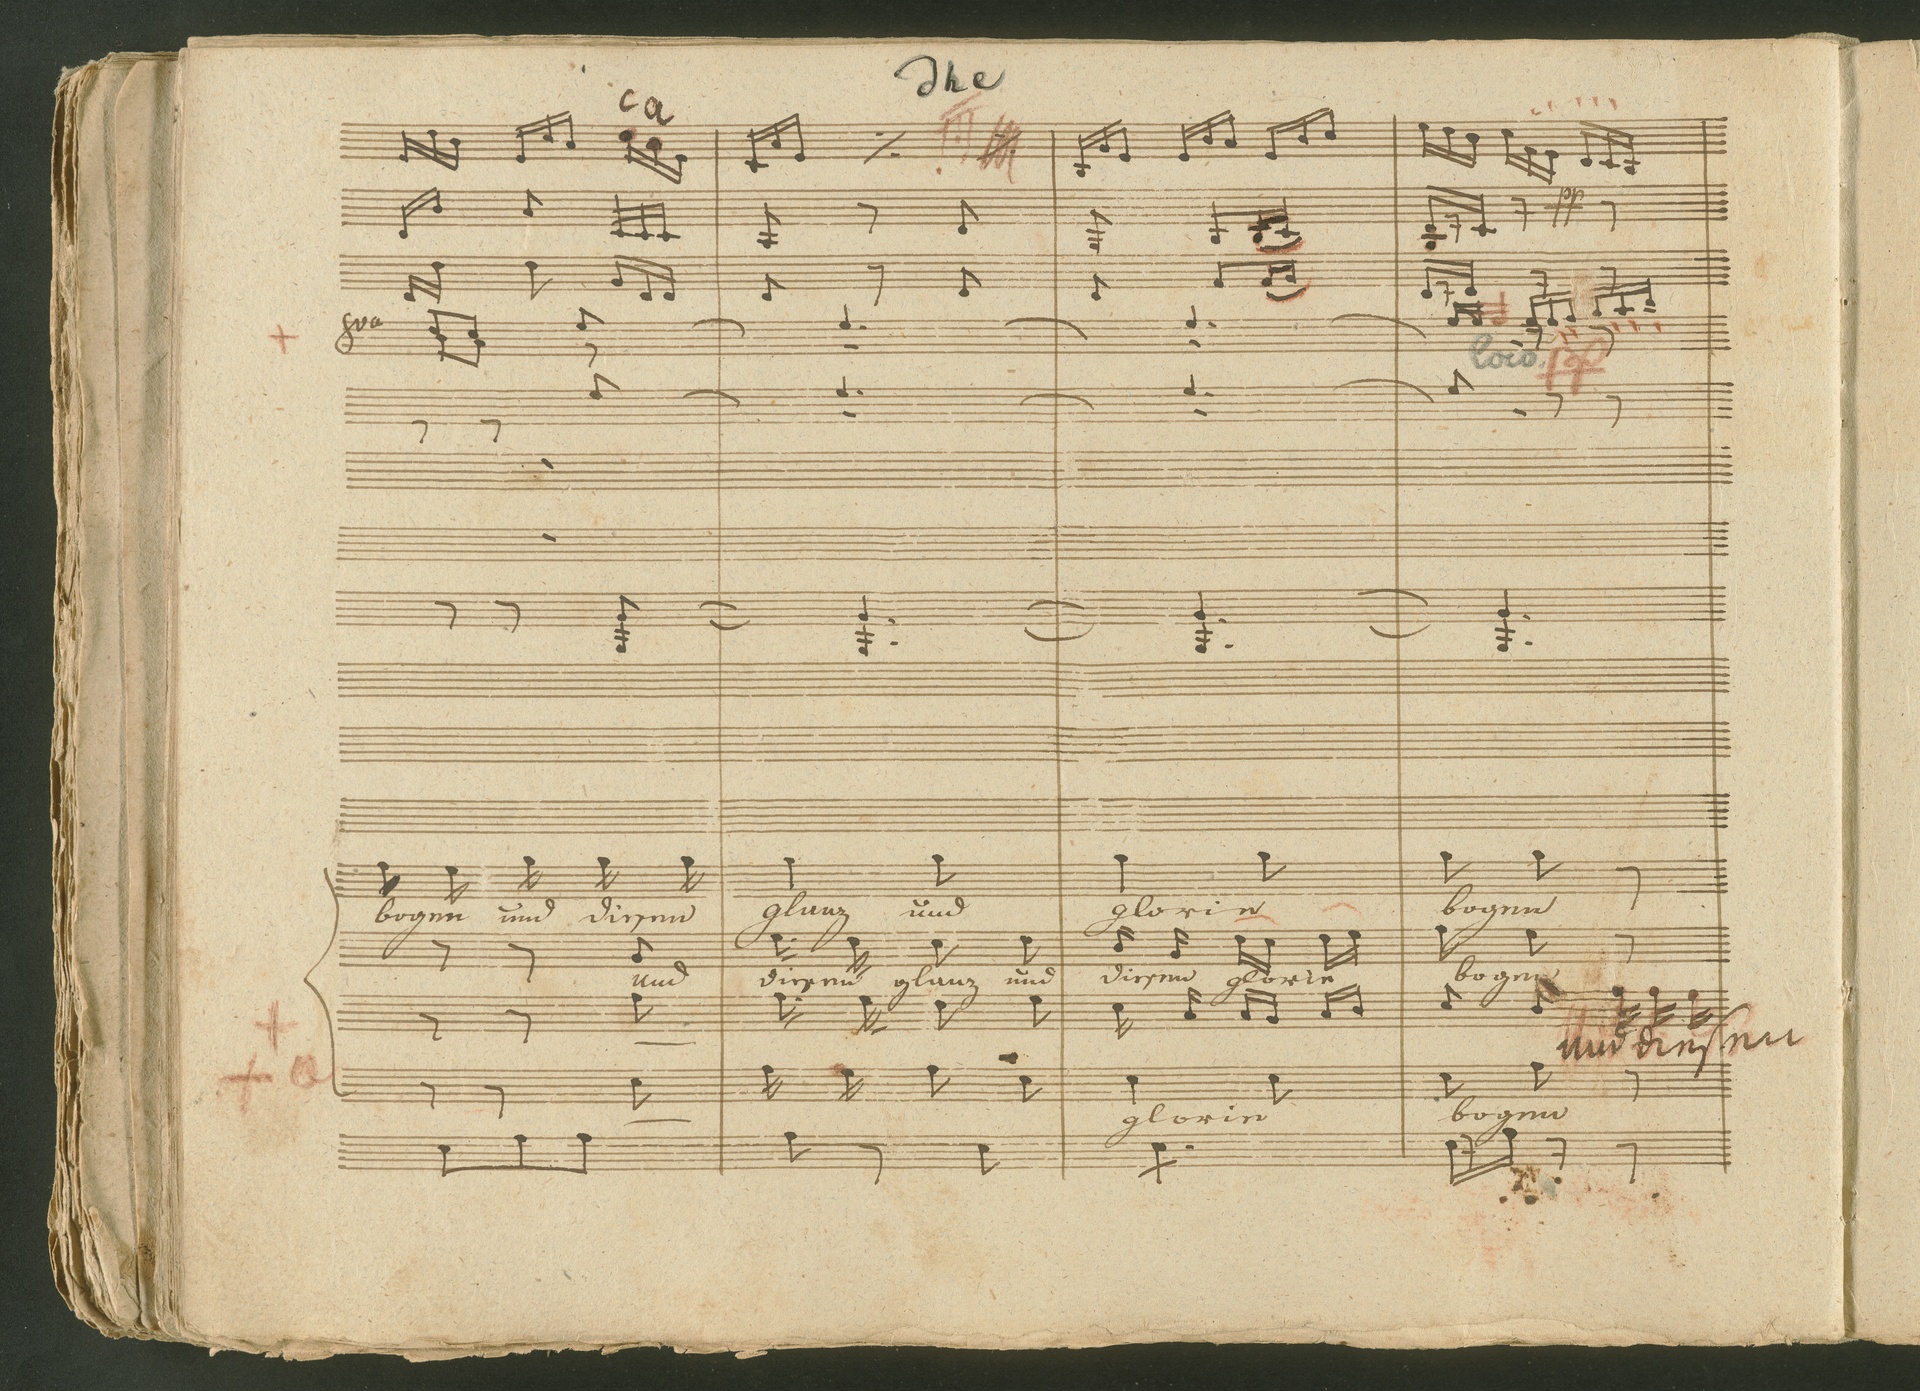 c a
pp
8va
loco
bogen und diesen glanz und glorie bogen
und diesen glanz und diesen glorie bogen
und diesen
glorie bogen